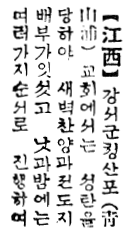 【江西】 강서군청산포(靑
山浦)교회에서는 성탄을
당하야 새벽찬양과전도지
배부가잇섯고 낫과밤에는
여러가지순서로 진행하여